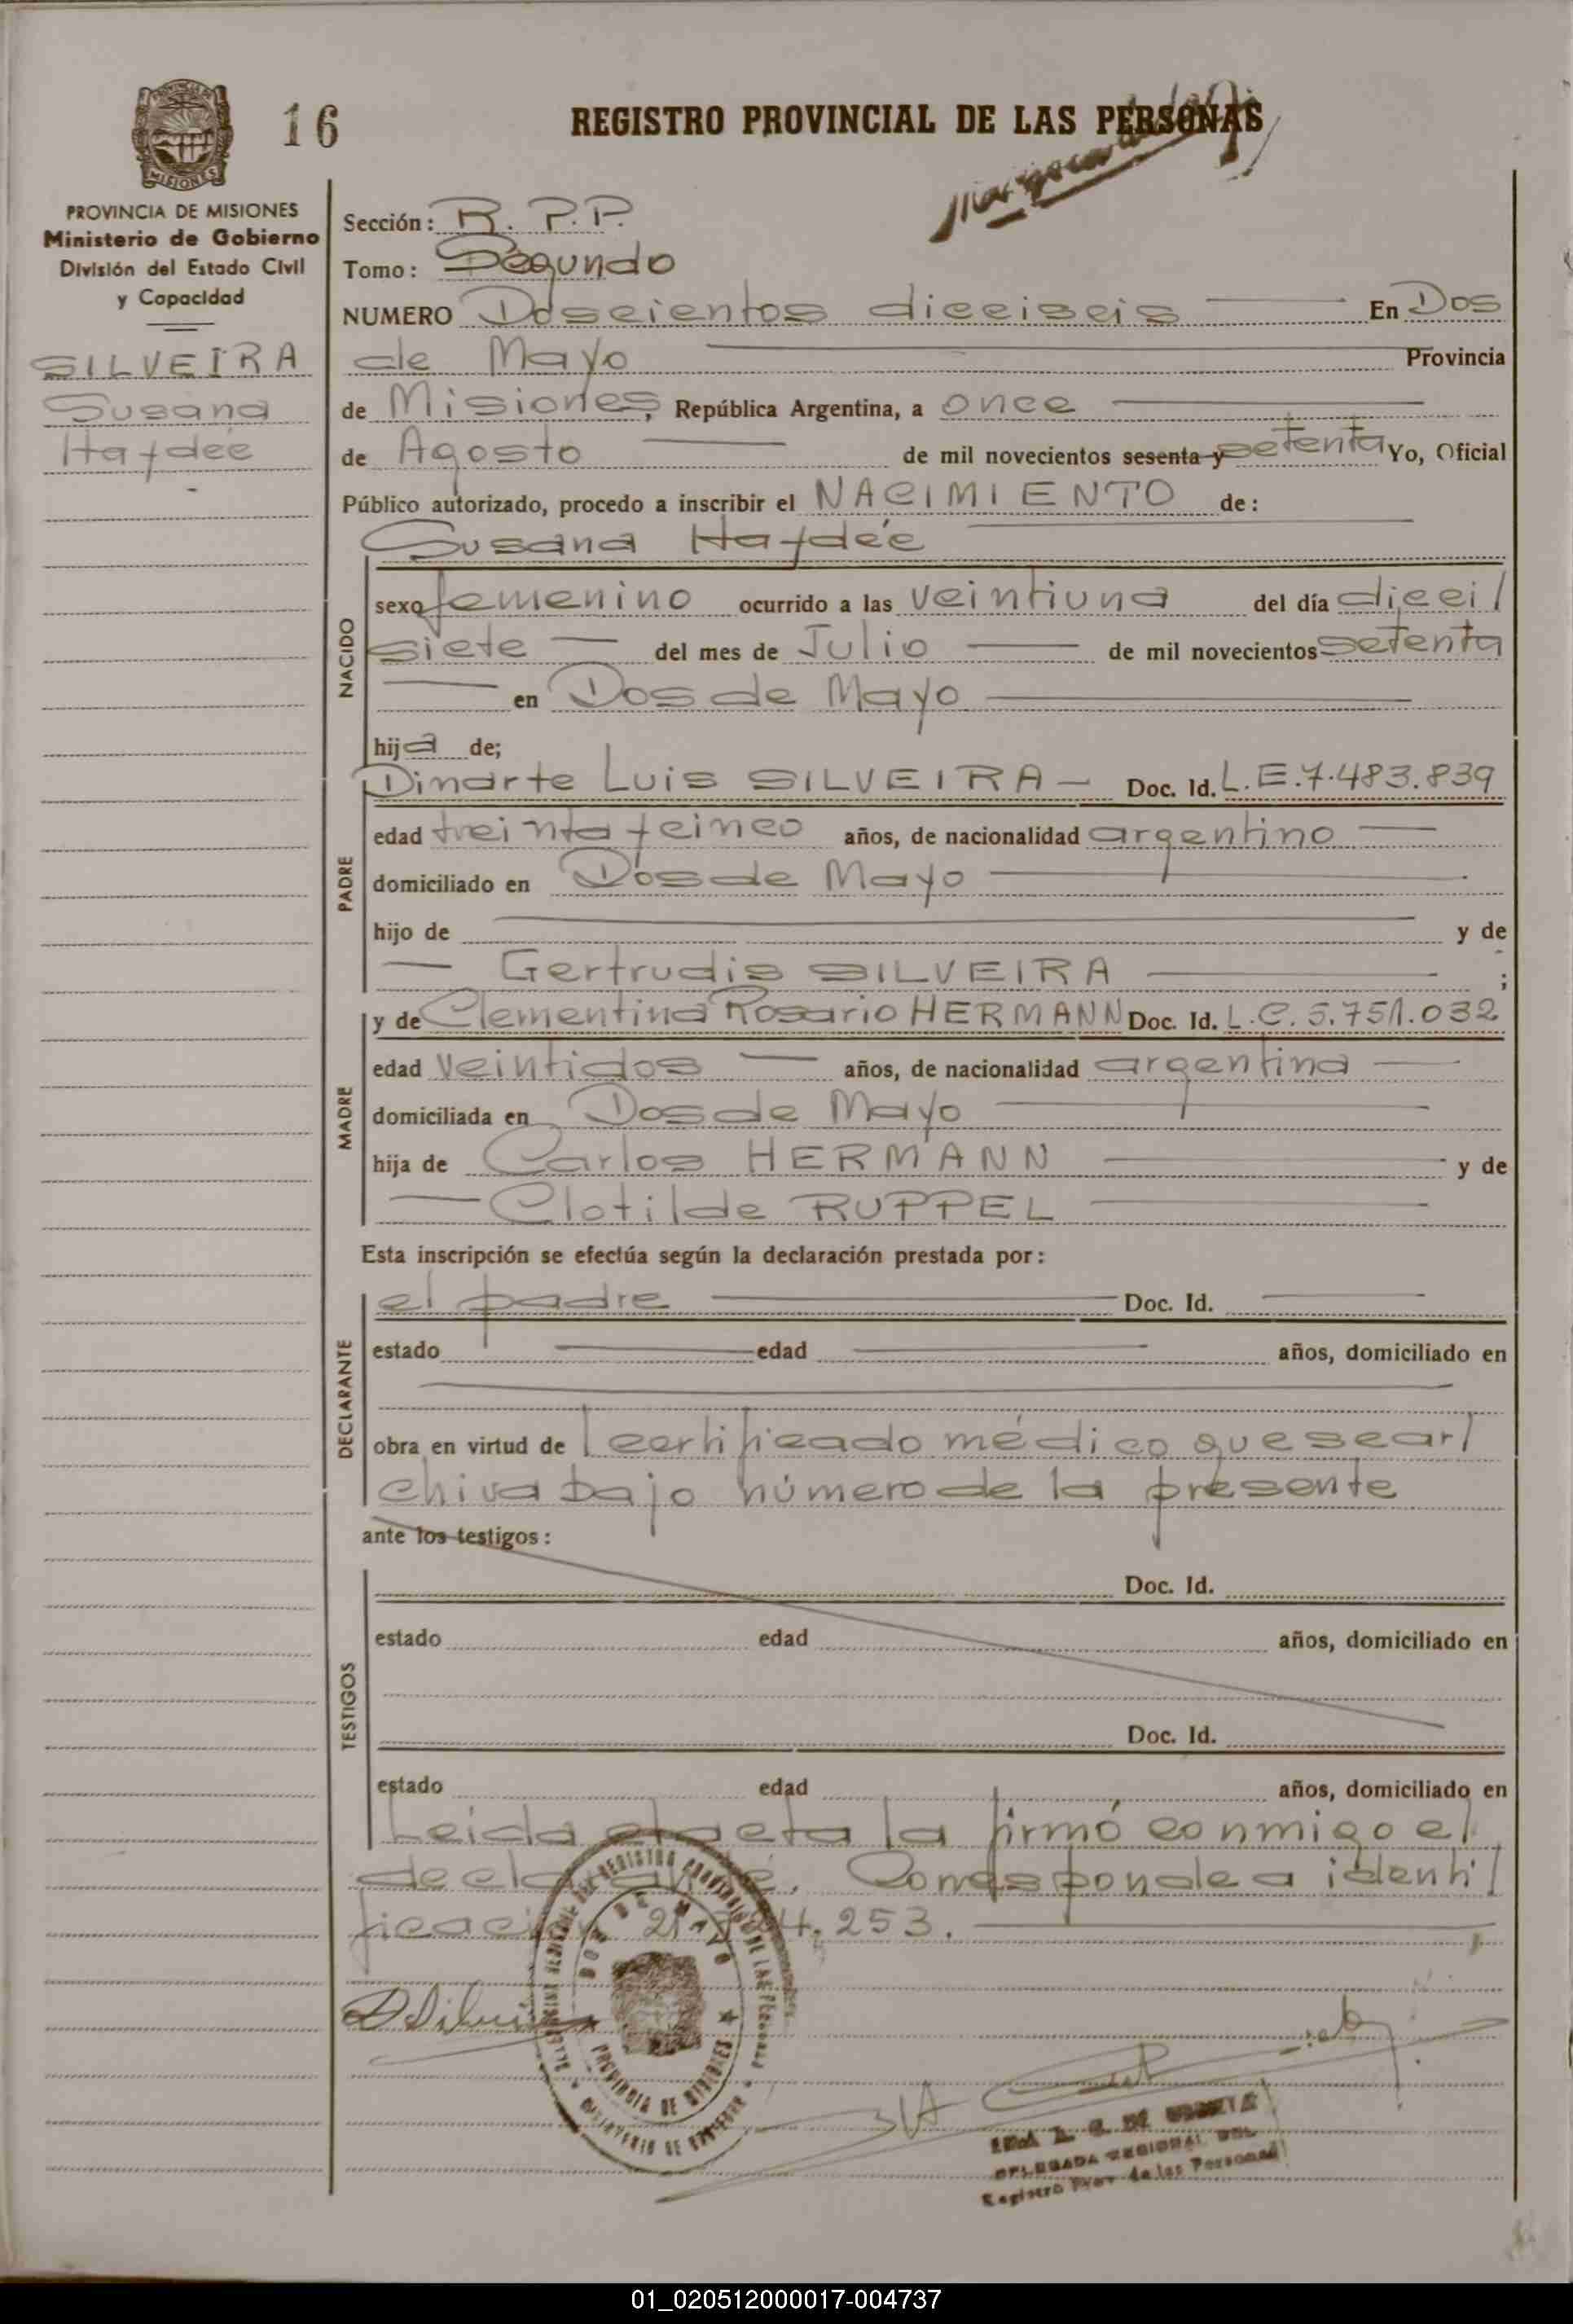 16
REGISTRO PROVINCIAL DE LAS PERSONAS
PROVINCIA DE MISIONES
Ministerio de Gobierno
División del Estado Civil
y Capacidad
SILVEIRA
Susana
Haydée
Sección: R. P.P.
Tomo: Segundo
NUMERO Doscientos dieciseis En Dos
de Mayo Provincia
de Misiones, República Argentina, a once
de Agosto de mil novecientos sesenta y setenta Yo, Oficial
Público autorizado, procedo a inscribir el NACIMIENTO de:
Susana Haydée
NACIDO
sexo femenino ocurrido a las veintiuna del día dieci/
siete del mes de Julio de mil novecientos setenta
en Dos de Mayo
hija de;
PADRE
Dinarte Luis SILVEIRA — Doc. Id. L.E.7.483.839
edad treinta y cinco años, de nacionalidad argentino
domiciliado en Dos de Mayo
hijo de y de
Gertrudis SILVEIRA ;
MADRE
y de Clementina Rosario HERMANN Doc. Id. L.C. 5.751.032
edad veintidos años, de nacionalidad argentina
domiciliada en Dos de Mayo
hija de Carlos HERMANN y de
Clotilde RUPPEL
Esta inscripción se efectúa según la declaración prestada por:
DECLARANTE
el padre Doc. Id.
estado edad años, domiciliado en
obra en virtud de certificado médico que se ar/
chiva bajo número de la presente
ante los testigos:
TESTIGOS
Doc. Id.
estado edad años, domiciliado en
Doc. Id.
estado edad años, domiciliado en
Leida el acta la firmó conmigo el
declarante. Corresponde a identi/
ficación 4.253.
DOS DE MAYO
PROVINCIA DE MISIONES
MINISTERIO DE GOBIERNO
DELEGADA REGIONAL DEL
Registro Prov. de las Personas
01_020512000017-004737